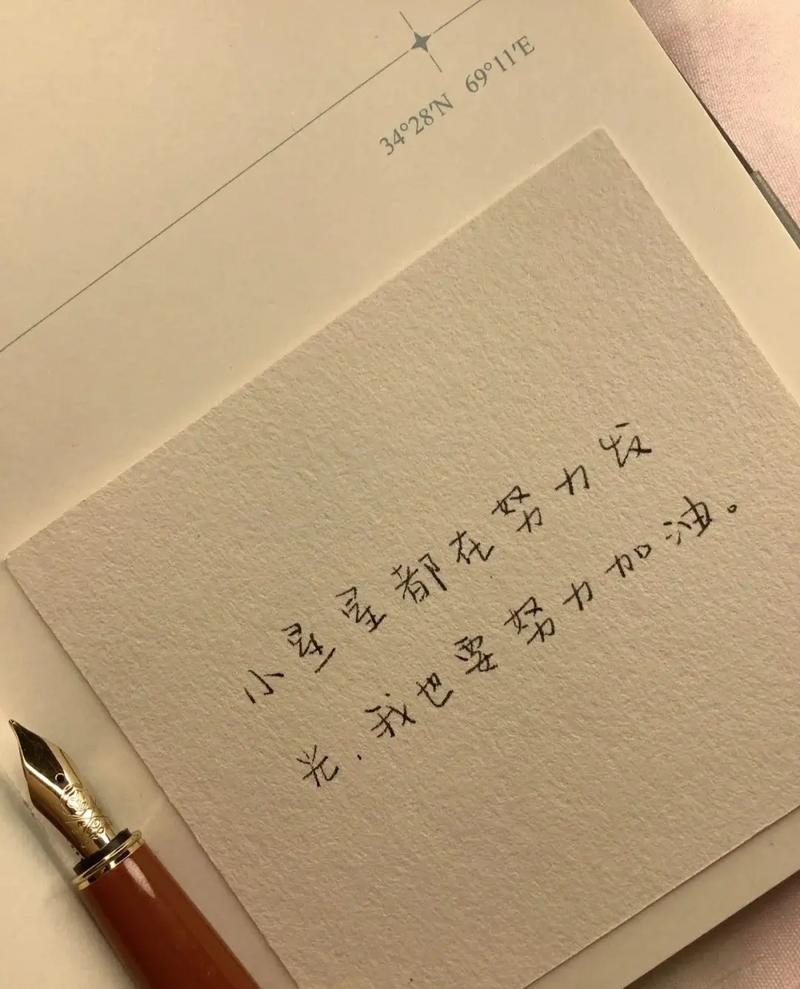 34°28′N 69°11′E
小星星都在努力发
光,我也要努力加油。